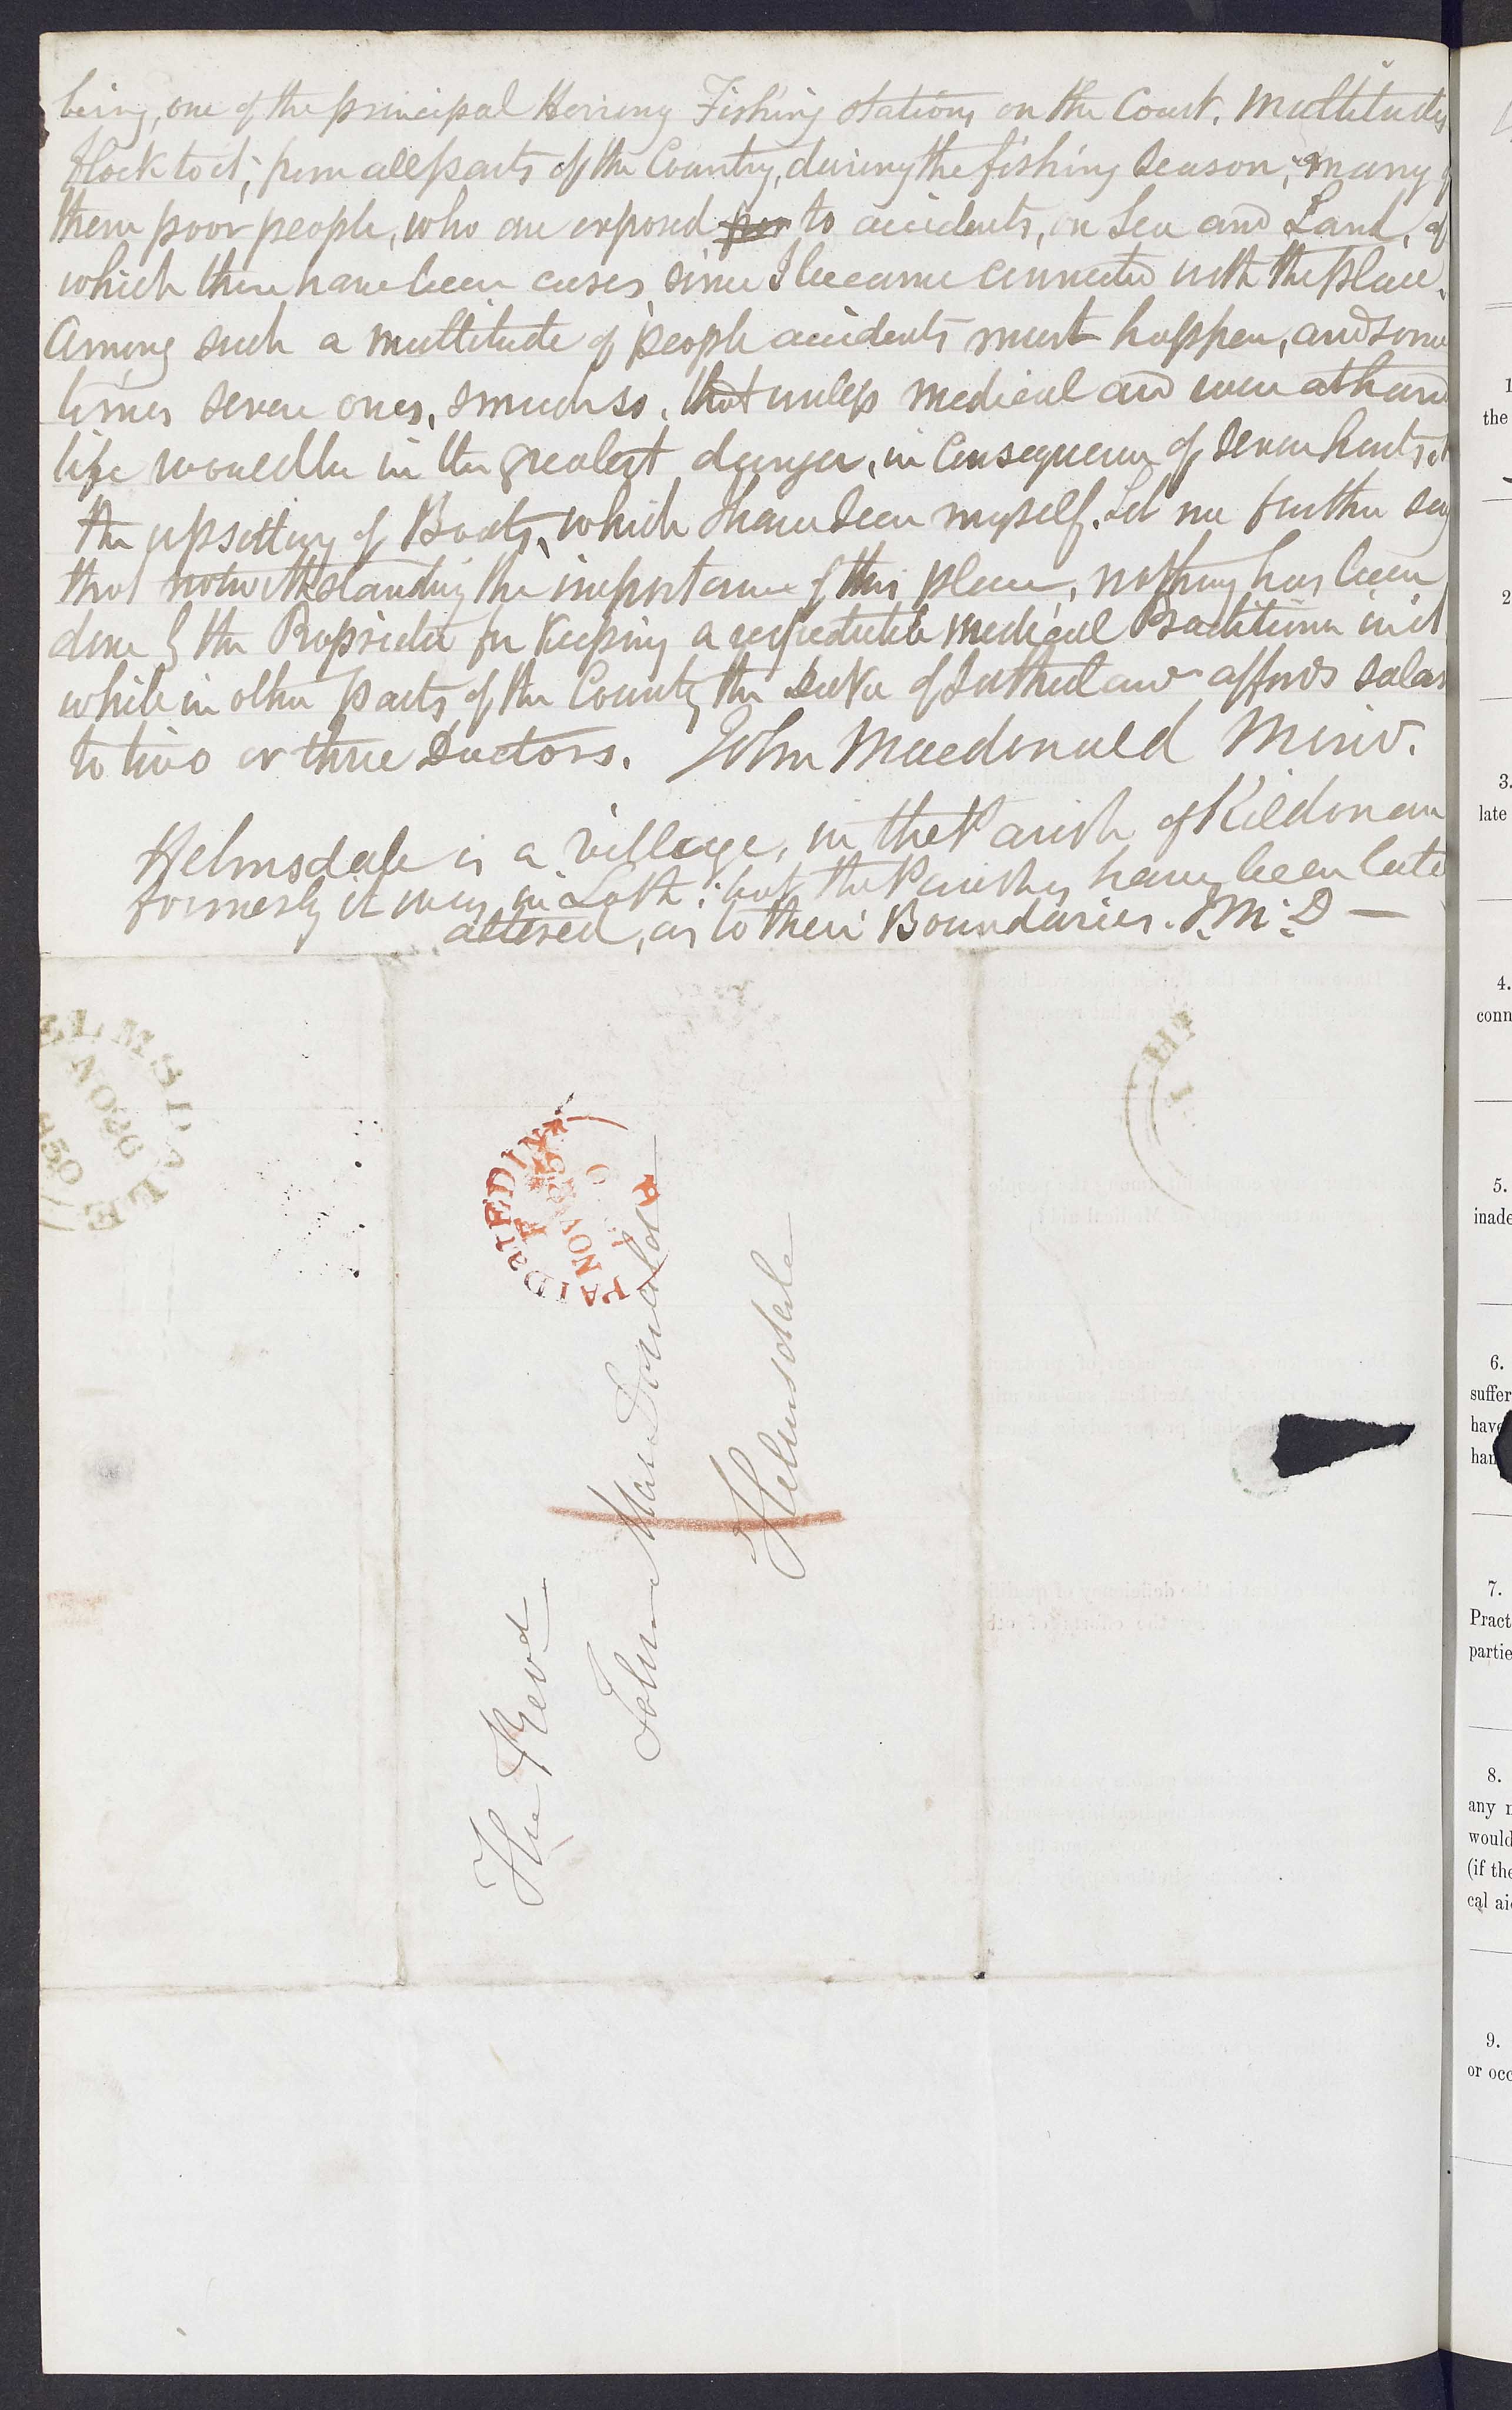 being, one of the principal Herring Fishing stations on the Coast. Multitudes
flock to it, from all parts of the Country, during the fishing Season, many of
them poor people, who are exposed to accidents, on Sea and Land, of
which there have been cases since I became connected with the place.
Among such a multitude of people accidents must happen, and some
times severe ones, so much so, that unless medical aid were at hand
life would be in the greatest danger, in Consequence of severe hurts, &
the upsetting of Boats, which I have seen myself. Let me further say
that notwithstanding the importance of this place, nothing has been
done by the Proprietor for Keeping a respectable medical Practitioner in it
while in other parts of the County the Duke of Sutherland affords salar
to two or three Doctors. John Macdonald Minr.
Helmsdale is a village, in the Parish of Kildonan
formerly it was in Loth: but the Parishes have been late
altered, as to their Boundaries. J. McD —
ELMSDALE
NO 26
850
PAID at EDIN
NOV
The Revd
John MacDonald
Helmsdale
1
the
2
3.
late
4.
conn
5.
inade
6.
suffer
have
han
7.
Pract
partie
8.
any
would
(if the
cal aid
9.
or occ